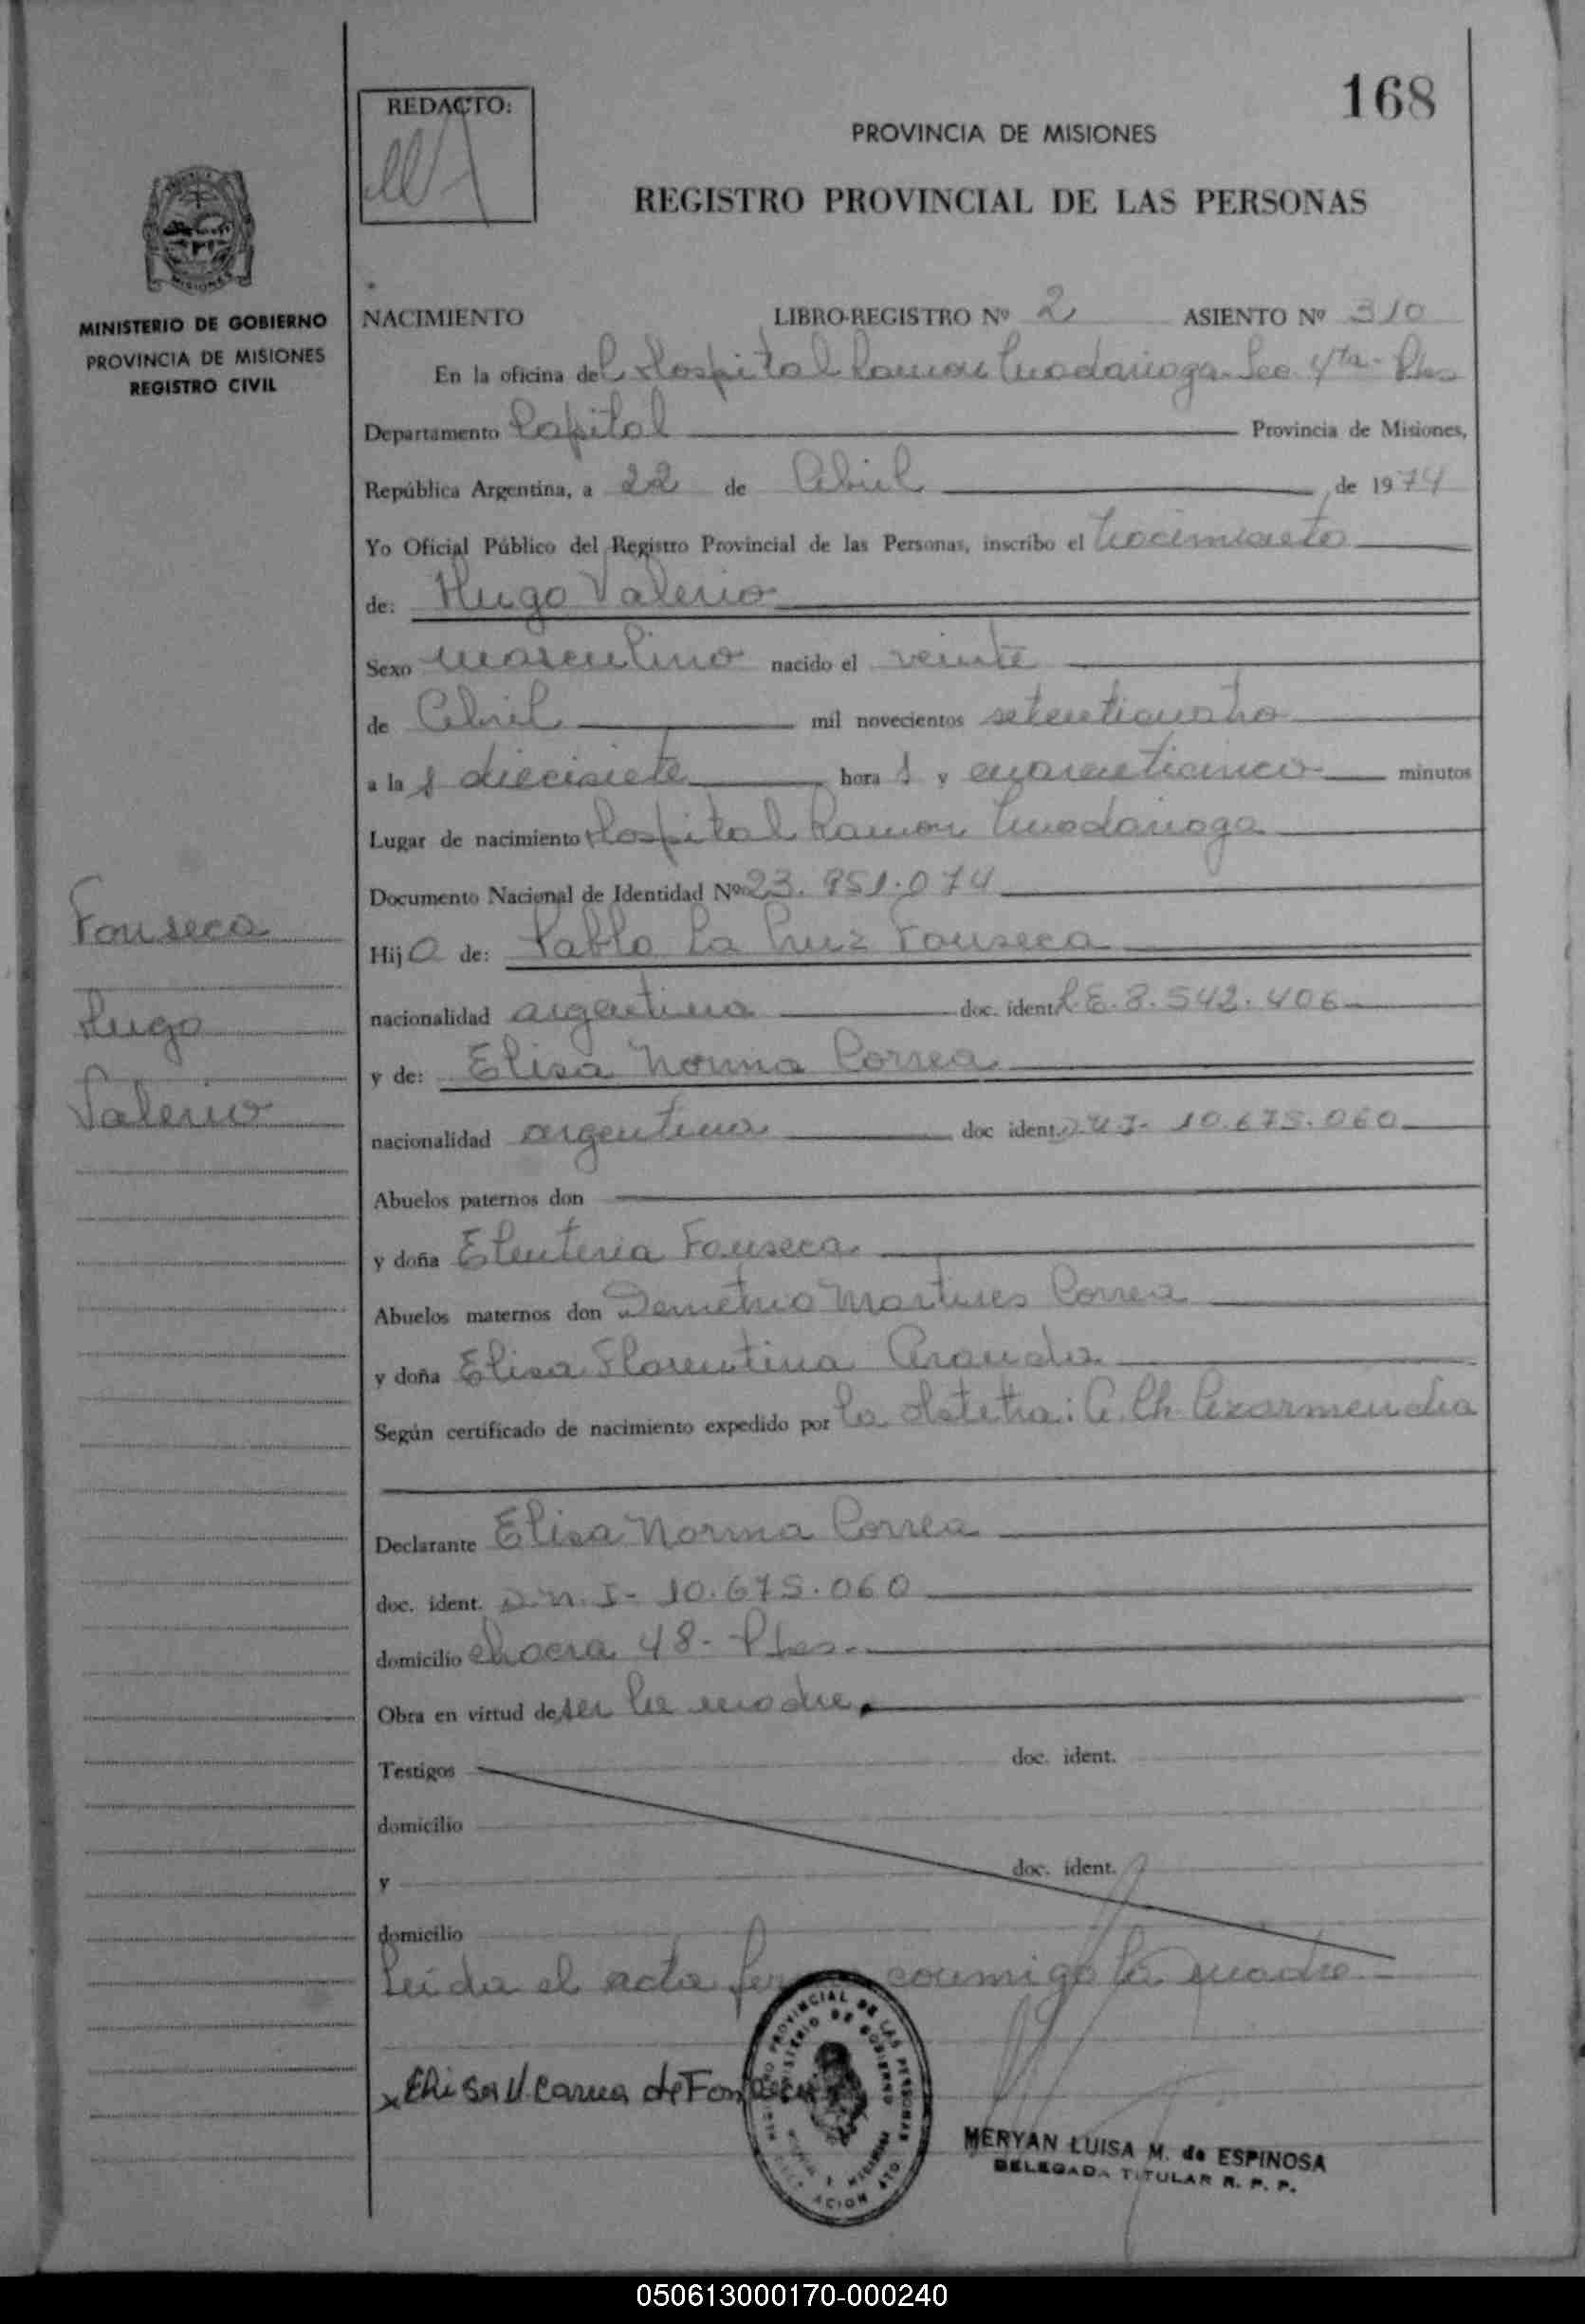 168
REDACTO:
PROVINCIA DE MISIONES
REGISTRO PROVINCIAL DE LAS PERSONAS
MINISTERIO DE GOBIERNO
PROVINCIA DE MISIONES
REGISTRO CIVIL
NACIMIENTO LIBRO-REGISTRO Nº 2 ASIENTO Nº 310
En la oficina del Hospital Ramon Madariaga Sec 4ta - Pdas
Departamento Capital Provincia de Misiones,
República Argentina, a 22 de Abril de 1974
Yo Oficial Público del Registro Provincial de las Personas, inscribo el nacimiento
de: Hugo Valerio
Sexo masculino nacido el veinte
de Abril mil novecientos setenticuatro
a las diecisiete horas y cuarenticinco minutos
Lugar de nacimiento Hospital Ramon Madariaga
Documento Nacional de Identidad Nº 23.851.074
Fonseca
Hugo
Valerio
Hijo de: Pablo La Cruz Fonseca
nacionalidad argentina doc. ident. L.E. 8.542.406
y de: Elisa Norma Correa
nacionalidad argentina doc ident. D.N.I- 10.675.060
Abuelos paternos don
y doña Eleuteria Fonseca
Abuelos maternos don Demetrio Martires Correa
y doña Elisa Florentina Aranda
Según certificado de nacimiento expedido por la obstetra: A. Ch. Azarmendia
Declarante Elisa Norma Correa
doc. ident. D.N.I- 10.675.060
domicilio chacra 48- Pdas.
Obra en virtud de ser la madre.
Testigos doc. ident.
domicilio
y doc. ident.
domicilio
Leida el acta conmigo la madre
x Elisa N. Correa de Fonseca
MERYAN LUISA M. de ESPINOSA
DELEGADA TITULAR R. P. P.
050613000170-000240